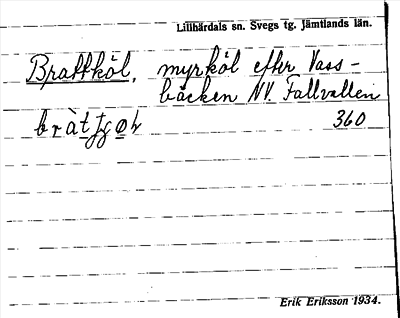 Lillhärdals sn. Svegs tg. Jämtlands län.
Brattköl, myrköl efter Vass-
bäcken NV. Fallvallen
360
Erik Eriksson 1934.